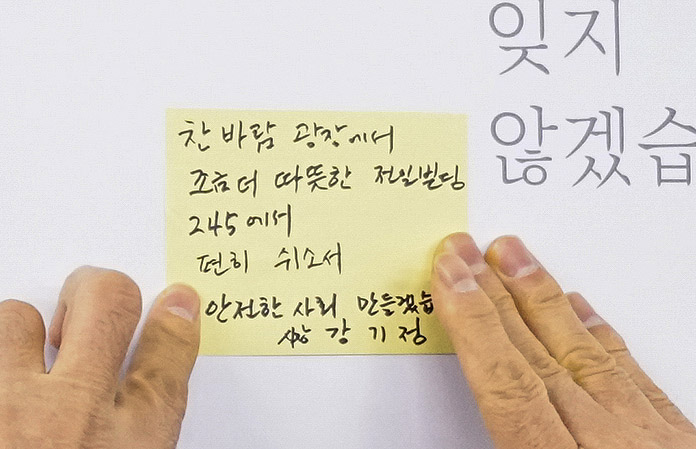 잊지
않겠습
찬 바람 광장에서
조금 더 따뜻한 전일빌딩
245에서
편히 쉬소서
안전한 사회 만들겠습
강 기 정